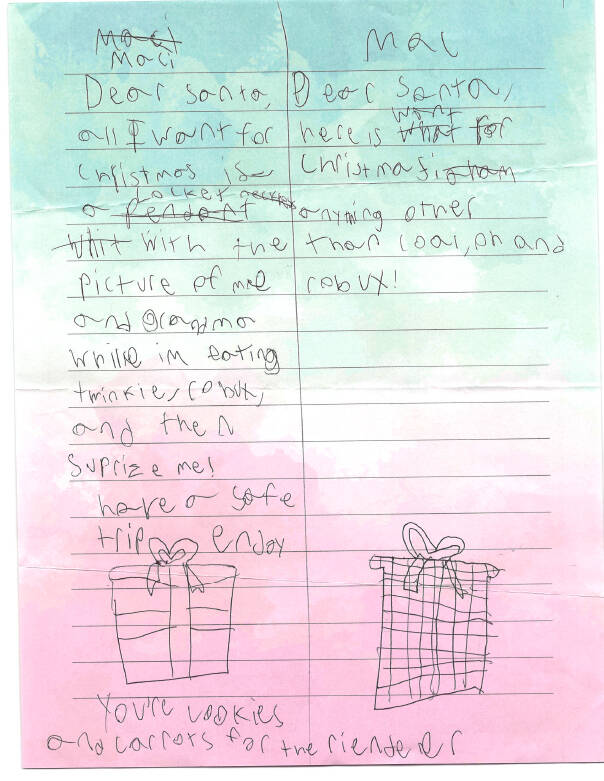 Maci
Maci
Dear Santa,
all I want for
christmas is
a Pendant locket necklas
whit with the
picture of me
and Grandma
while im eating
twinkies, robux,
and then
suprize me!
have a safe
trip enjoy
Mac
Dear Santa,
want
here is what for
christmas
anything other
than coal, oh and
robux!
You're cookies
and carrots for the riendeer